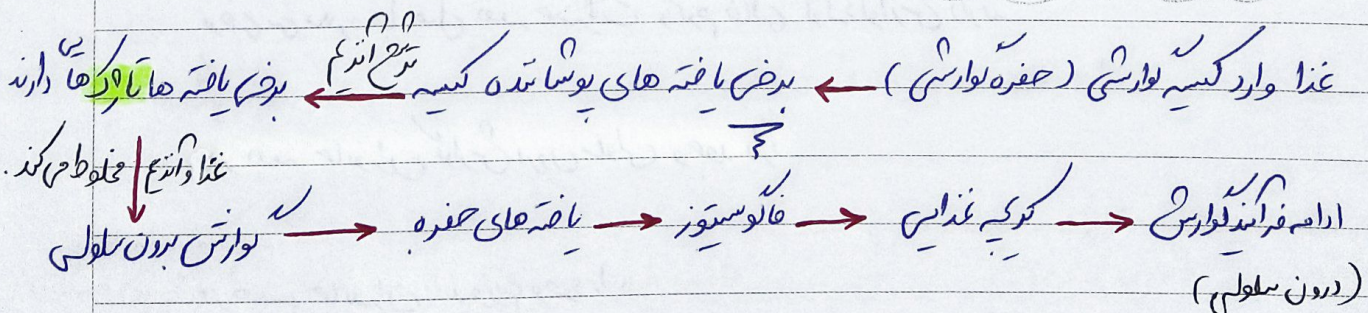 غذا وارد کیسهٔ گوارشی (حفرهٔ گوارشی) ← برخی یاخته های پوشاننده کیسه ← ترشح آنزیم برخی یاخته ها تاژک هایی دارند
غذا و آنزیم مخلوط می کند.
گوارش برون سلولی → یاخته های حفره → فاگوسیتوز → کریچه غذایی → ادامه فرآیند گوارش
(درون سلولی)